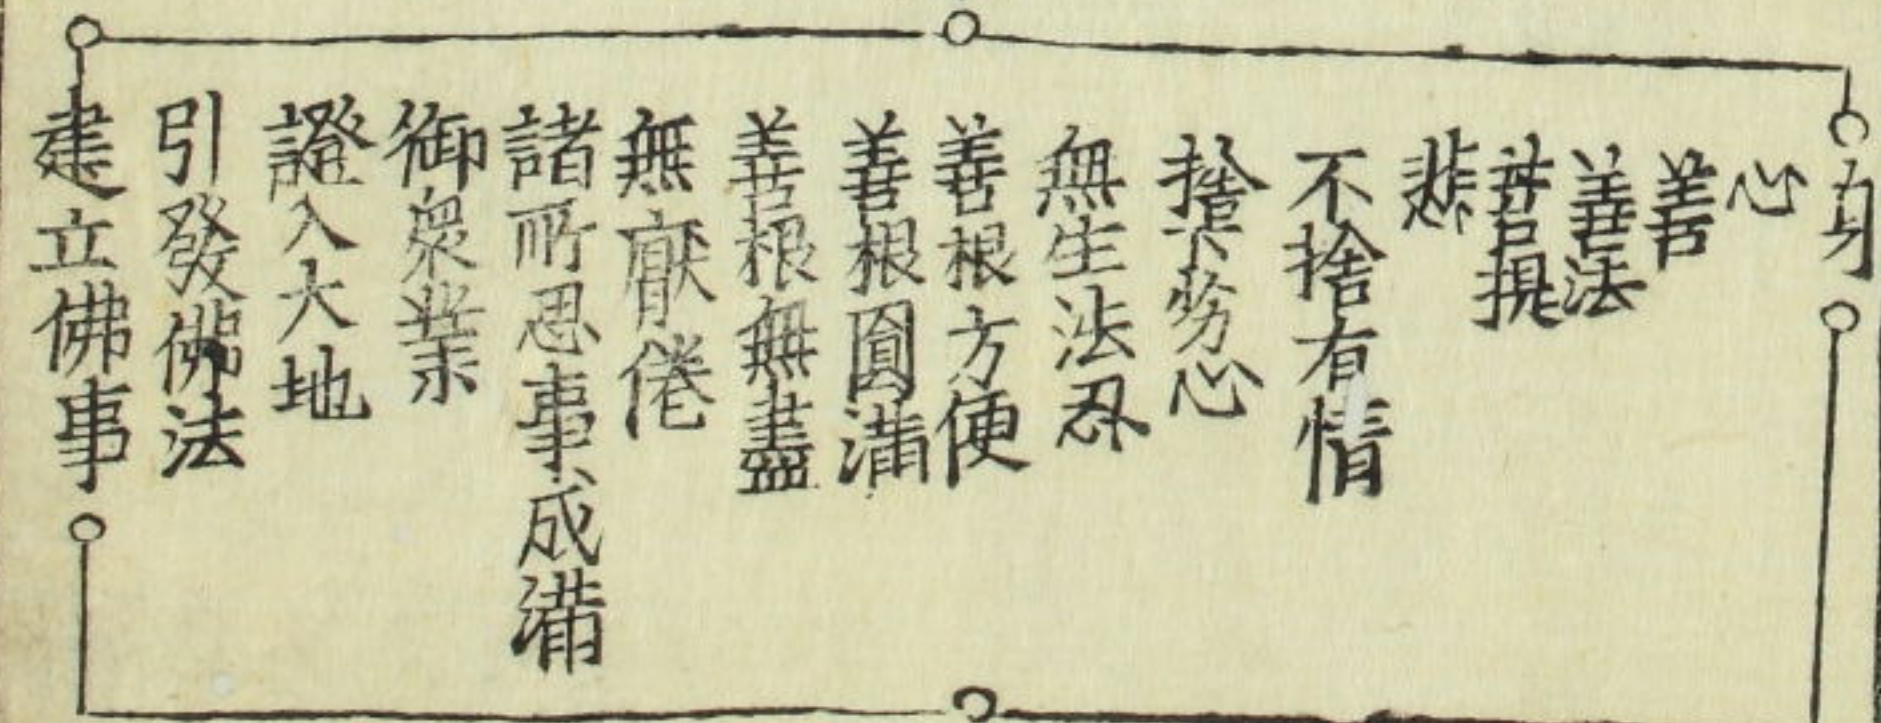 身
心
善
善法
菩提
悲
不捨有情
捨下劣心
無生法忍
善根方便
善根圓滿
善根無盡
無厭倦
諸所思事成滿
御衆業
證入大地
引發佛法
建立佛事